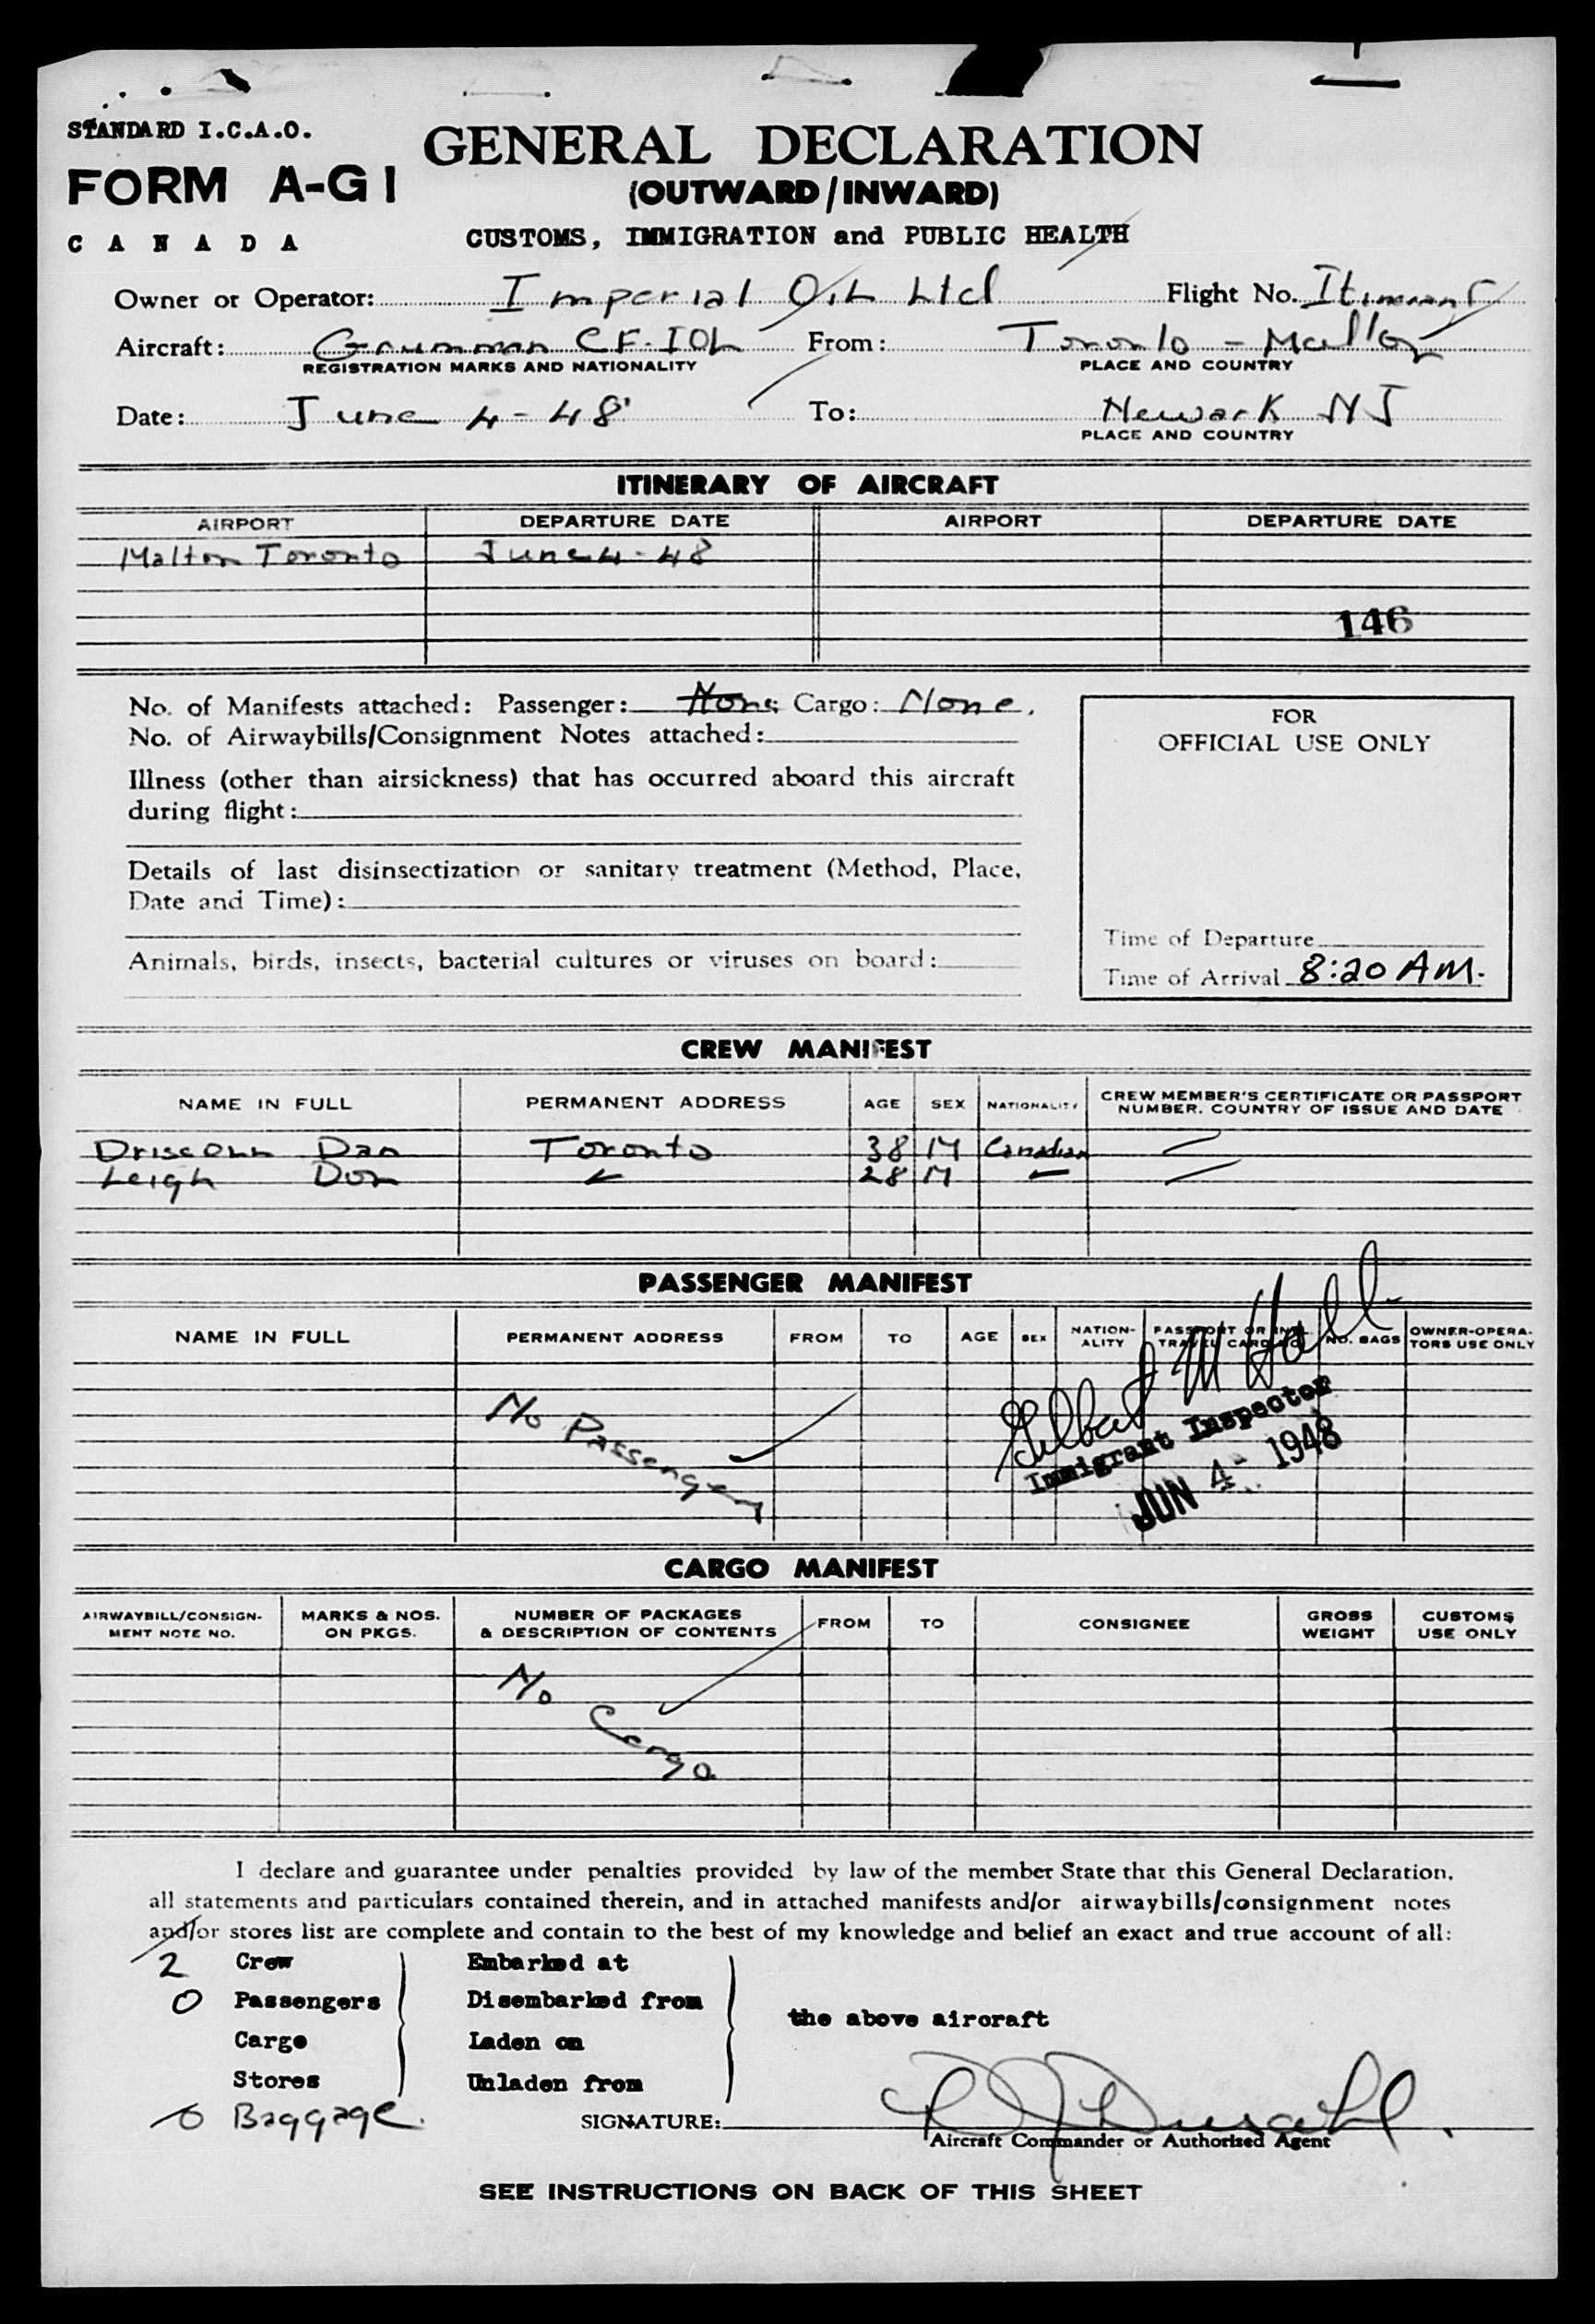 STANDARD I.C.A.O.
FORM A-G1
C A N A D A
GENERAL DECLARATION
(OUTWARD/INWARD)
CUSTOMS, IMMIGRATION and PUBLIC HEALTH
Owner or Operator: Imperial Oil Ltd Flight No. Itinerant
Aircraft: Grumman CF-IOL From: Toronto - Malton
REGISTRATION MARKS AND NATIONALITY PLACE AND COUNTRY
Date: June 4-48 To: Newark NJ
PLACE AND COUNTRY
ITINERARY OF AIRCRAFT
AIRPORT DEPARTURE DATE AIRPORT DEPARTURE DATE
Malton Toronto June 4-48
146
No. of Manifests attached: Passenger: None Cargo: None.
No. of Airwaybills/Consignment Notes attached:
Illness (other than airsickness) that has occurred aboard this aircraft
during flight:
Details of last disinsectization or sanitary treatment (Method, Place,
Date and Time):
Animals, birds, insects, bacterial cultures or viruses on board:
FOR
OFFICIAL USE ONLY
Time of Departure
Time of Arrival 8:20 AM.
CREW MANIFEST
NAME IN FULL PERMANENT ADDRESS AGE SEX NATIONALITY CREW MEMBER'S CERTIFICATE OR PASSPORT NUMBER. COUNTRY OF ISSUE AND DATE
Driscoll Dan Toronto 38 M Canadian
Leigh Don 28 M
PASSENGER MANIFEST
NAME IN FULL PERMANENT ADDRESS FROM TO AGE SEX NATION-ALITY PASSPORT OR INT. TRAVEL CARD NO. BAGS OWNER-OPERA-TORS USE ONLY
No Passengers
Gilbert M Hall
Immigrant Inspector
JUN 4 - 1948
CARGO MANIFEST
AIRWAYBILL/CONSIGN-MENT NOTE NO. MARKS & NOS. ON PKGS. NUMBER OF PACKAGES & DESCRIPTION OF CONTENTS FROM TO CONSIGNEE GROSS WEIGHT CUSTOMS USE ONLY
No Cargo
I declare and guarantee under penalties provided by law of the member State that this General Declaration,
all statements and particulars contained therein, and in attached manifests and/or airwaybills/consignment notes
and/or stores list are complete and contain to the best of my knowledge and belief an exact and true account of all:
2 Crew Embarked at
0 Passengers Disembarked from
the above aircraft
Cargo Laden on
Stores Unladen from
0 Baggage.
SIGNATURE:
Aircraft Commander or Authorized Agent
SEE INSTRUCTIONS ON BACK OF THIS SHEET